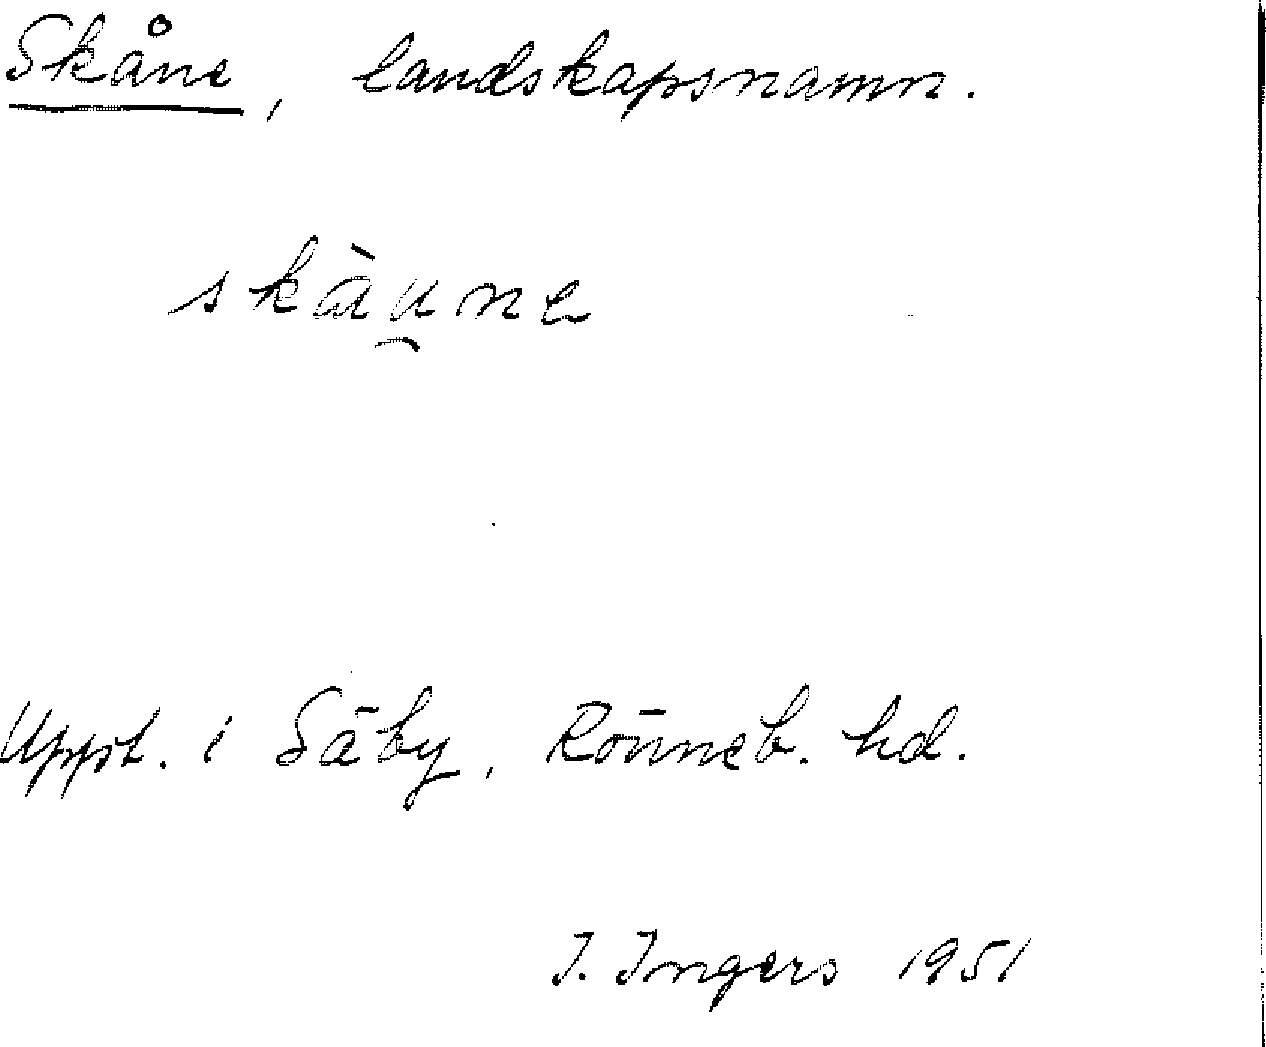 Skåne, landskapsnamn.
skàu̯ne
Uppt. i Säby, Rönneb. hd.
I. Ingers 1951